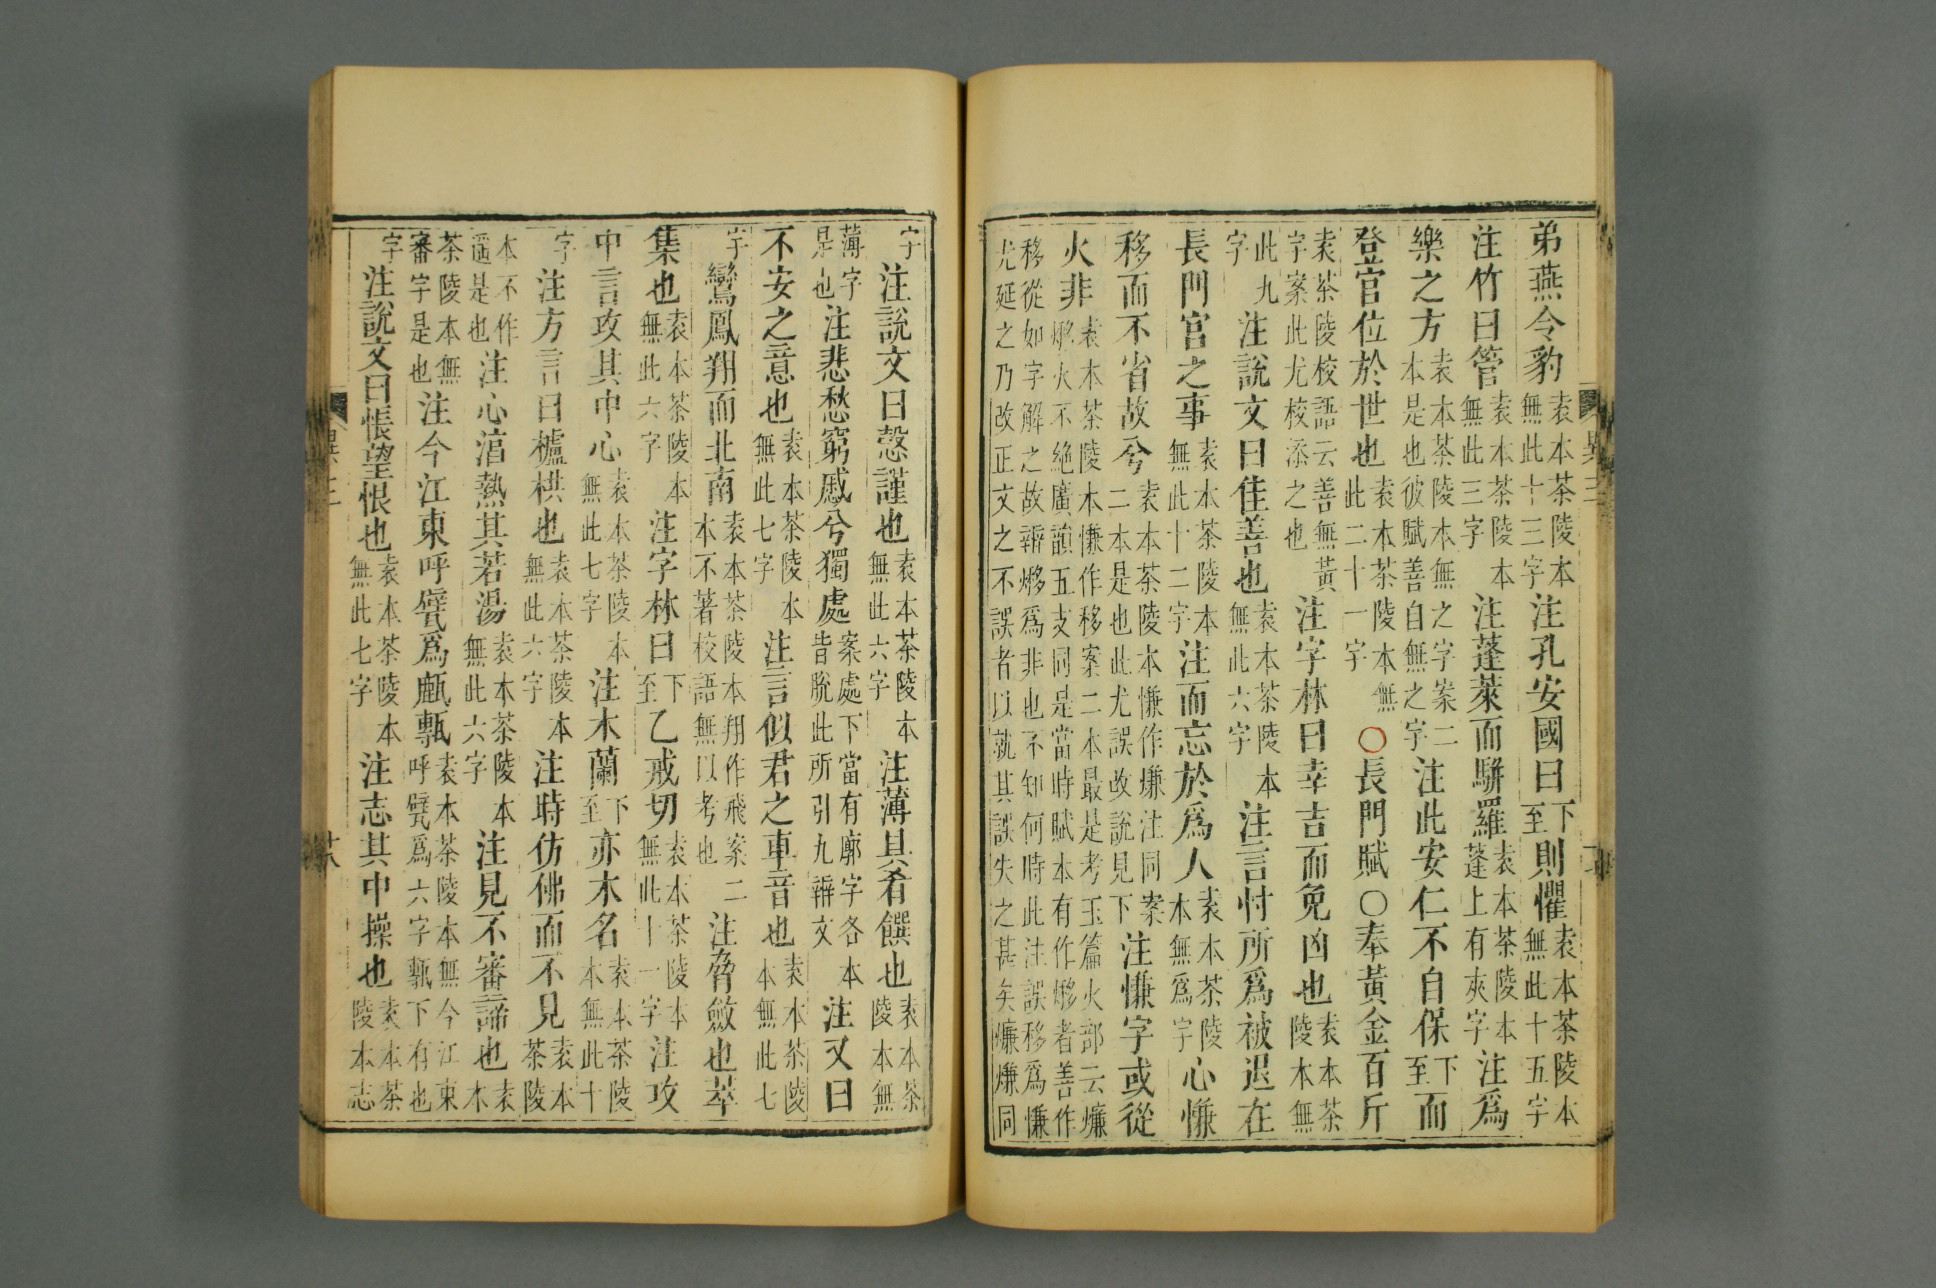 弟燕令豹袁本茶陵本無此十三字注孔安國曰下至則懼袁本茶陵本無此十五字
注竹曰管袁本茶陵本無此三字注蓬萊而駢羅袁本茶陵本蓬上有夾字注爲
樂之方袁本茶陵本無之字案二本是也彼賦善自無之字注此安仁不自保下至而
登官位於世也袁本茶陵本無此二十一字○長門賦○奉黃金百斤
袁茶陵校語云善無黃字案此尤校添之也注字林曰幸吉而免凶也袁本茶陵本無
此九字注說文曰佳善也袁本茶陵本無此六字注言忖所爲被退在
長門宮之事袁本茶陵本無此十二字注而忘於爲人袁本茶陵本無爲字心慊
移而不省故兮袁本茶陵本慊作熑注同案二本是也此尤誤改說見下注慊字或從
火非袁本茶陵本慊作移案二本最是考玉篇火部云熑㶊火不絶廣韻五支同是當時賦本有作㶊者善作
移從如字解之故辨㶊爲非也不知何時此注誤移爲慊
尤延之乃改正文之不誤者以就其誤失之甚矣熑熑同
字注說文曰愨謹也袁本茶陵本無此六字注薄具肴饌也袁本茶陵本無
薄字是也注悲愁窮慼兮獨處案處下當有廓字各本皆脫此所引九辯文注又曰
不安之意也袁本茶陵本無此七字注言似君之車音也袁本茶陵本無此七
字鸞鳳翔而北南袁本茶陵本翔作飛案二本不著校語無以考也注脅斂也萃
集也袁本茶陵本無此六字注字林曰下至乙戒切袁本茶陵本無此十一字注攻
中言攻其中心袁本茶陵本無此七字注木蘭下至亦木名袁本茶陵本無此十
字注方言曰櫨栱也袁本茶陵本無此六字注時仿佛而不見袁本茶陵
本不作遥是也注心㵒熱其若湯袁本茶陵本無此六字注見不審諦也袁本
茶陵本無審字是也注今江東呼甓爲㼾甎袁本茶陵本無今江東呼甓爲六字甎下有也
字注說文曰悵望恨也袁本茶陵本無此七字注志其中操也袁本茶陵本志
異三
共